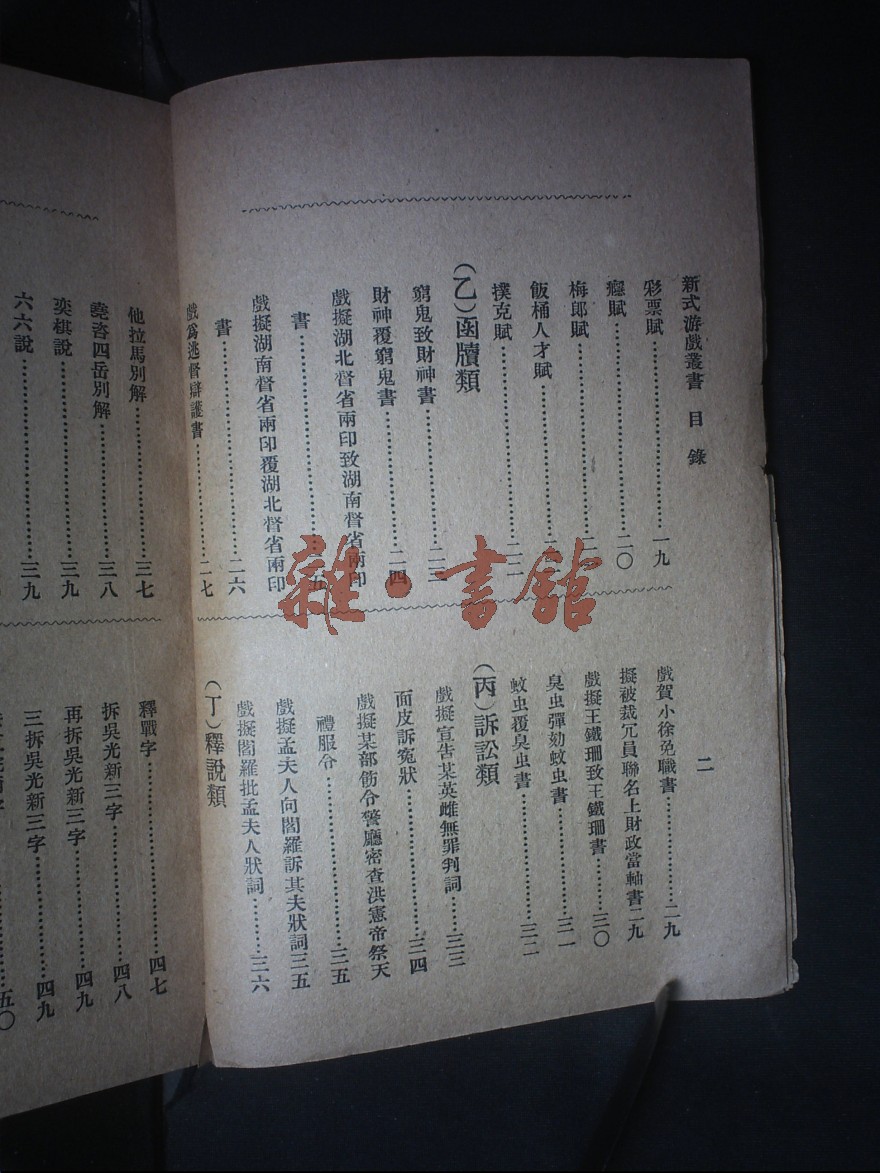 新式游戲叢書 目錄
二
彩票賦……一九
癮賦……二〇
梅郎賦……二
飯桶人才賦……二
撲克賦……二二
(乙)函牘類
窮鬼致財神書……二三
財神覆窮鬼書……二四
戲擬湖北督省兩印致湖南督省兩印
書……五
戲擬湖南督省兩印覆湖北督省兩印
書……二六
戲爲逃督辯護書……二七
戲賀小徐免職書……二九
擬被裁冗員聯名上財政當軸書二九
戲擬王鐵珊致王鐵珊書……三〇
臭虫彈劾蚊虫書……三一
蚊虫覆臭虫書……三二
(丙)訴訟類
戲擬宣告某英雌無罪判詞……三三
面皮訴冤狀……三四
戲擬某部飭令警廳密查洪憲帝祭天
禮服令……三五
戲擬孟夫人向閻羅訴其夫狀詞三五
戲擬閻羅批孟夫人狀詞……三六
(丁)釋說類
他拉馬別解……三七
堯咨四岳別解……三八
奕棋說……三九
六六說……三九
釋戰字……四七
拆吳光新三字……四八
再拆吳光新三字……四九
三拆吳光新三字……四九
五〇
雜·書館